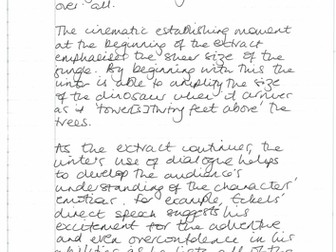 over all.
The cinematic establishing moment
at the beginning of the extract
emphasises the sheer size of the
jungle. By beginning with this the
writer is able to amplify the size
of the dinosaur when it arrives
as it 'tower[s] thirty feet above' the
trees.
As the extract continues, the
writer's use of dialogue helps
to develop the audience's
understanding of the characters'
emotions. For example, Eckels'
direct speech suggests his
excitement for the adventure
and even overconfidence in his